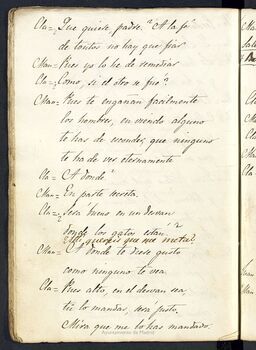 Cla= Que quiere, padre? A la fé
de tantos no hay que fiar
Chan= Pues yo lo he de remediar
Cla= Como, si el otro se fué?
Chan= Pues te engañan facilmente
los hombres, en viendo alguno
te has de esconder, que ninguno
te ha de ver eternamente
Cla= A donde?
Chan= En parte secreta.
Cla= Será bueno en un desvan
donde los gatos están?
que me meta?
Chan= A donde te diese gusto
como ninguno te vea.
Cla= Pues alto, en el desvan sea,
tú lo mandas, sea justo.
Mira que me lo has mandado.
Ayuntamiento de Madrid